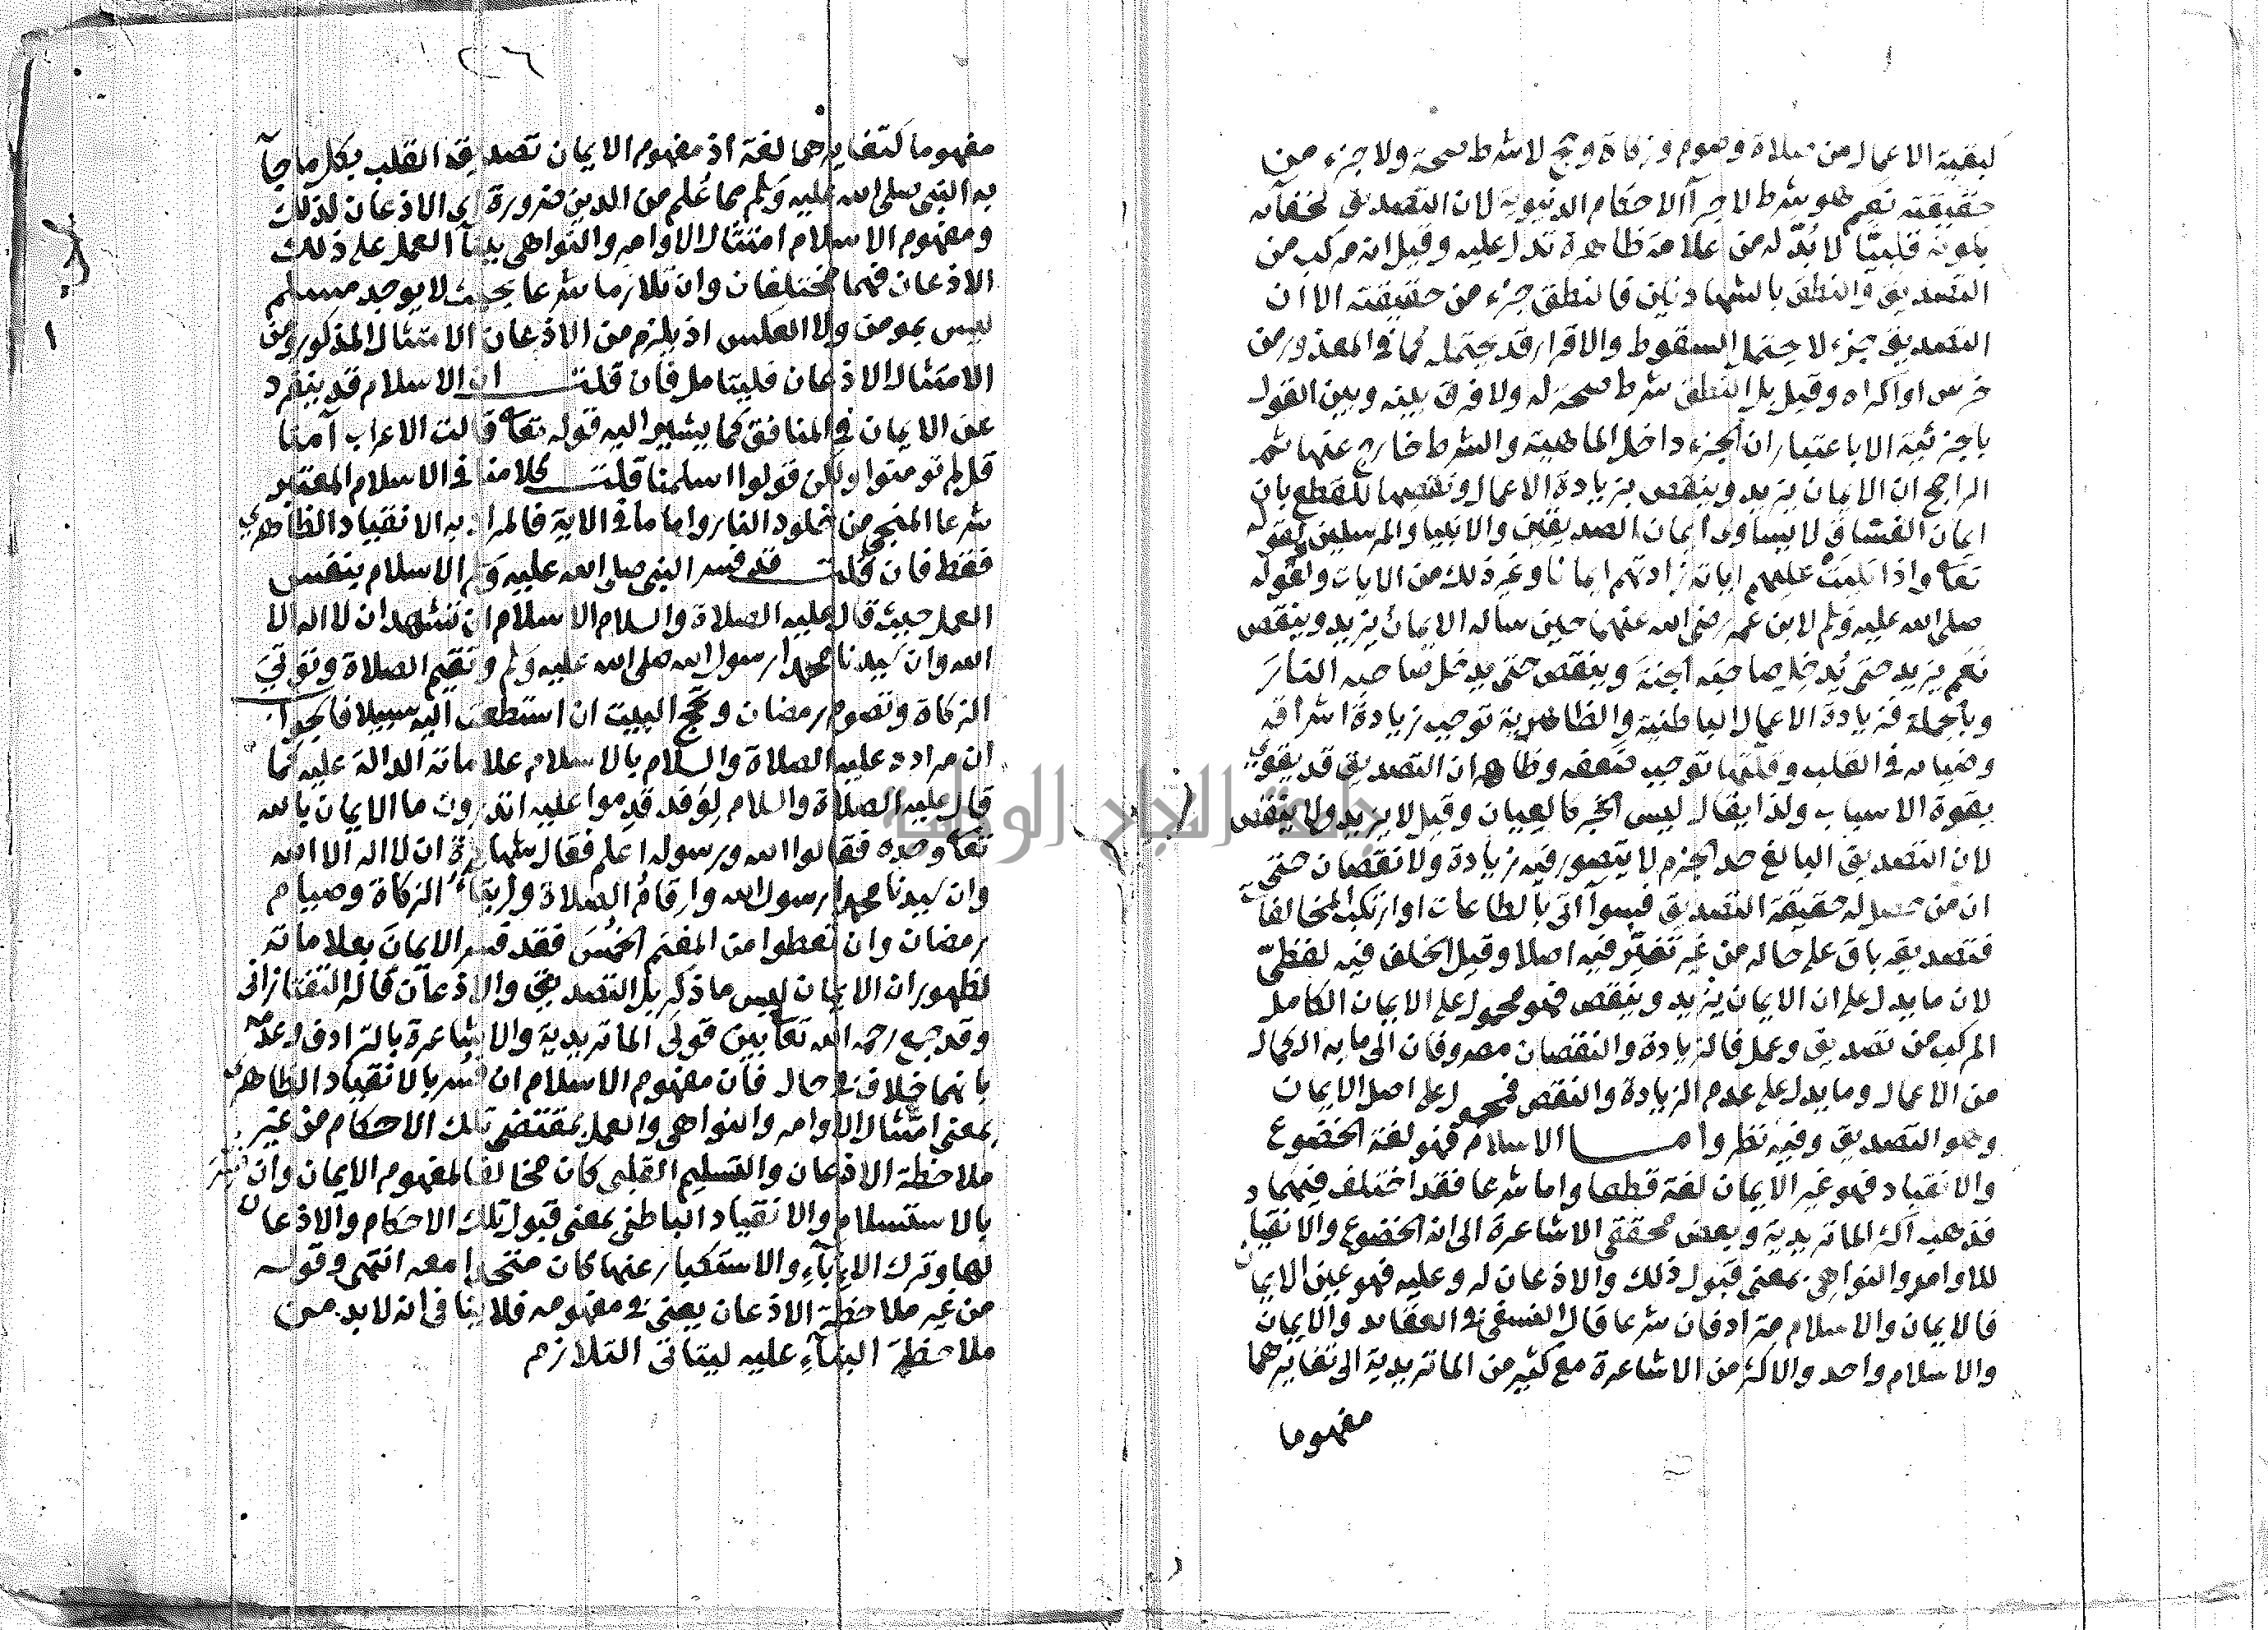 لبقية الاعمال من صلاة وصوم وزكاة وحج لا شرط صحة ولا جزء من
حقيقته نعم هو شرط لاجرآ الاحكام الدنيوية لان التصديق لخفآئه
بكونه قلبيّا لا بُدّ له من علامة ظاهرة تدل عليه وقيل انه مركب من
التصديق والنطق بالشهادتين فالنطق جزء من حقيقته الا ان
التصديق جزء لا يحتمل السقوط والاقرار قد يحتمله كما في المعذور من
خرس او اكراه وقيل بل النطق شرط صحة له ولا فرق بينه وبين القول
بالجزئية الا باعتبار ان الجزء داخل الماهية والشرط خارج عنها ثم
الراجح ان الايمان يزيد وينقص بزيادة الاعمال ونقصها للقطع بان
ايمان الفساق لا يساوى ايمان الصديقين والانبيا والمرسلين لقوله
تعا واذا تليت عليهم اياته زادتهم ايمانا وغير ذلك من الايات ولقوله
صلى الله عليه وسلم لابن عمر رضى الله عنهما حين ساله الايمان يزيد وينقص
نعم يزيد حتى يُدخل صاحبَه الجنة وينقص حتى يدخل صاحبه النارَ
وبالجملة فزيادة الاعمال الباطنية والظاهرية توجب زيادة اشراقه
وضيائه في القلب وقلتها توجب ضعفه وظاهر ان التصديق قد يقوي
بقوة الاسباب ولذا يقال ليس الخبر كالعيان وقيل لا يزيد ولا ينقص
لان التصديق البالغ حد الجزم لا يتصور فيه زيادة ولا نقصان حتى
ان من حصل له حقيقة التصديق فسوآ اتى بالطاعات او ارتكب المخالفات
فتصديقه باق على حاله من غير تغيّر فيه اصلا وقيل الخلف فيه لفظىّ
لان ما يدل على ان الايمان يزيد وينقص فهو محمول على الايمان الكامل
المركب من تصديق وعمل فالزيادة والنقصان مصروفان الى ما به الكمال
من الاعمال وما يدل على عدم الزيادة والنقص فمحمول على اصل الايمان
وهو التصديق وفيه نظر وامـــا الاسلام فهو لغة الخضوع
والانقياد فهو غير الايمان لغة قطعا واما شرعا فقد اختلف فيهما
فذهب اكثر الماتريدية وبعض محققى الاشاعرة الى انه الخضوع والانقياد
للاوامر والنواهى بمعنى قبول ذلك والاذعان له وعليه فهو عين الايمان
فالايمان والاسلام مترادفان شرعا قال النسفى في العقائد والايمان
والاسلام واحد والاكثر من الاشاعرة مع كثير من الماتريدية الى تغايرهما
مفهوما
٢٦
مفهوما كتغايرهما لغة اذ مفهوم الايمان تصديق القلب بكل ما جآ
به النبى صلى الله عليه وسلم مما عُلم من الدين ضرورة اى الاذعان لذلك
ومفهوم الاسلام امتثال الاوامر والنواهى ببنآ العمل على ذلك
الاذعان فهما مختلفان وان تلازما شرعا بحيث لا يوجد مسلم
ليس بمومن ولا العكس اذ يلزم من الاذعان الامتثال المذكور ومن
الامتثال الاذعان فليتامل فان قلت ان الاسلام قد ينفرد
عن الايمان في المنافق كما يشير اليه قوله تعا قالت الاعراب آمنا
قل لم تومنوا ولكن قولوا اسلمنا قلت كلامنا في الاسلام المعتبر
شرعا المنجى من خلود النار واما ما في الاية فالمراد به الانقياد الظاهري
فقط فان قلت قد فسر النبى صلى الله عليه وسلم الاسلام بنفس
العمل حيث قال عليه الصلاة والسلام الاسلام ان تشهد ان لا اله الا
الله وان سيدنا محمدا رسول الله صلى الله عليه وسلم وتقيم الصلاة وتوتي
الزكاة وتصوم رمضان وتحج البيت ان استطعت اليه سبيلا فالجواب
ان مراده عليه الصلاة والسلام بالاسلام علاماته الدالة عليه كما
قال عليه الصلاة والسلام لوفد قدموا عليه اتدرون ما الايمان بالله
تعا وحده فقالوا الله ورسوله اعلم فقال شهادة ان لا اله الا الله
وان سيدنا محمدا رسول الله واقامُ الصلاة وايتآءُ الزكاة وصيام
رمضان وان تعطوا من المغنم الخمُسَ فقد فسر الايمانَ بعلاماته
لظهور ان الايمان ليس ما ذكر بل التصديق والاذعان قاله التفتازانى
وقد جمع رحمه الله تعا بين قولى الماتريدية والاشاعرة بالترادف وعدمه
بانهما خلاف في حال فان مفهوم الاسلام ان فسر بالانقياد الظاهرى
بمعنى امتثال الاوامر والنواهى والعمل بمقتضى تلك الاحكام من غير
ملاحظة الاذعان والتسليم القلبى كان مخالفا لمفهوم الايمان وان فسر
بالاستسلام والانقياد الباطنى بمعنى قبول تلك الاحكام والاذعان
لها وترك الاِبآءِ والاستكبار عنها كان متحدا معه انتهى وقوله
من غير ملاحظة الاذعان يعنى في مفهومه فلا ينافى انه لا بد من
ملاحظة البنآءِ عليه ليتاتى التلازم
١
جامعة النجاح الوطنية